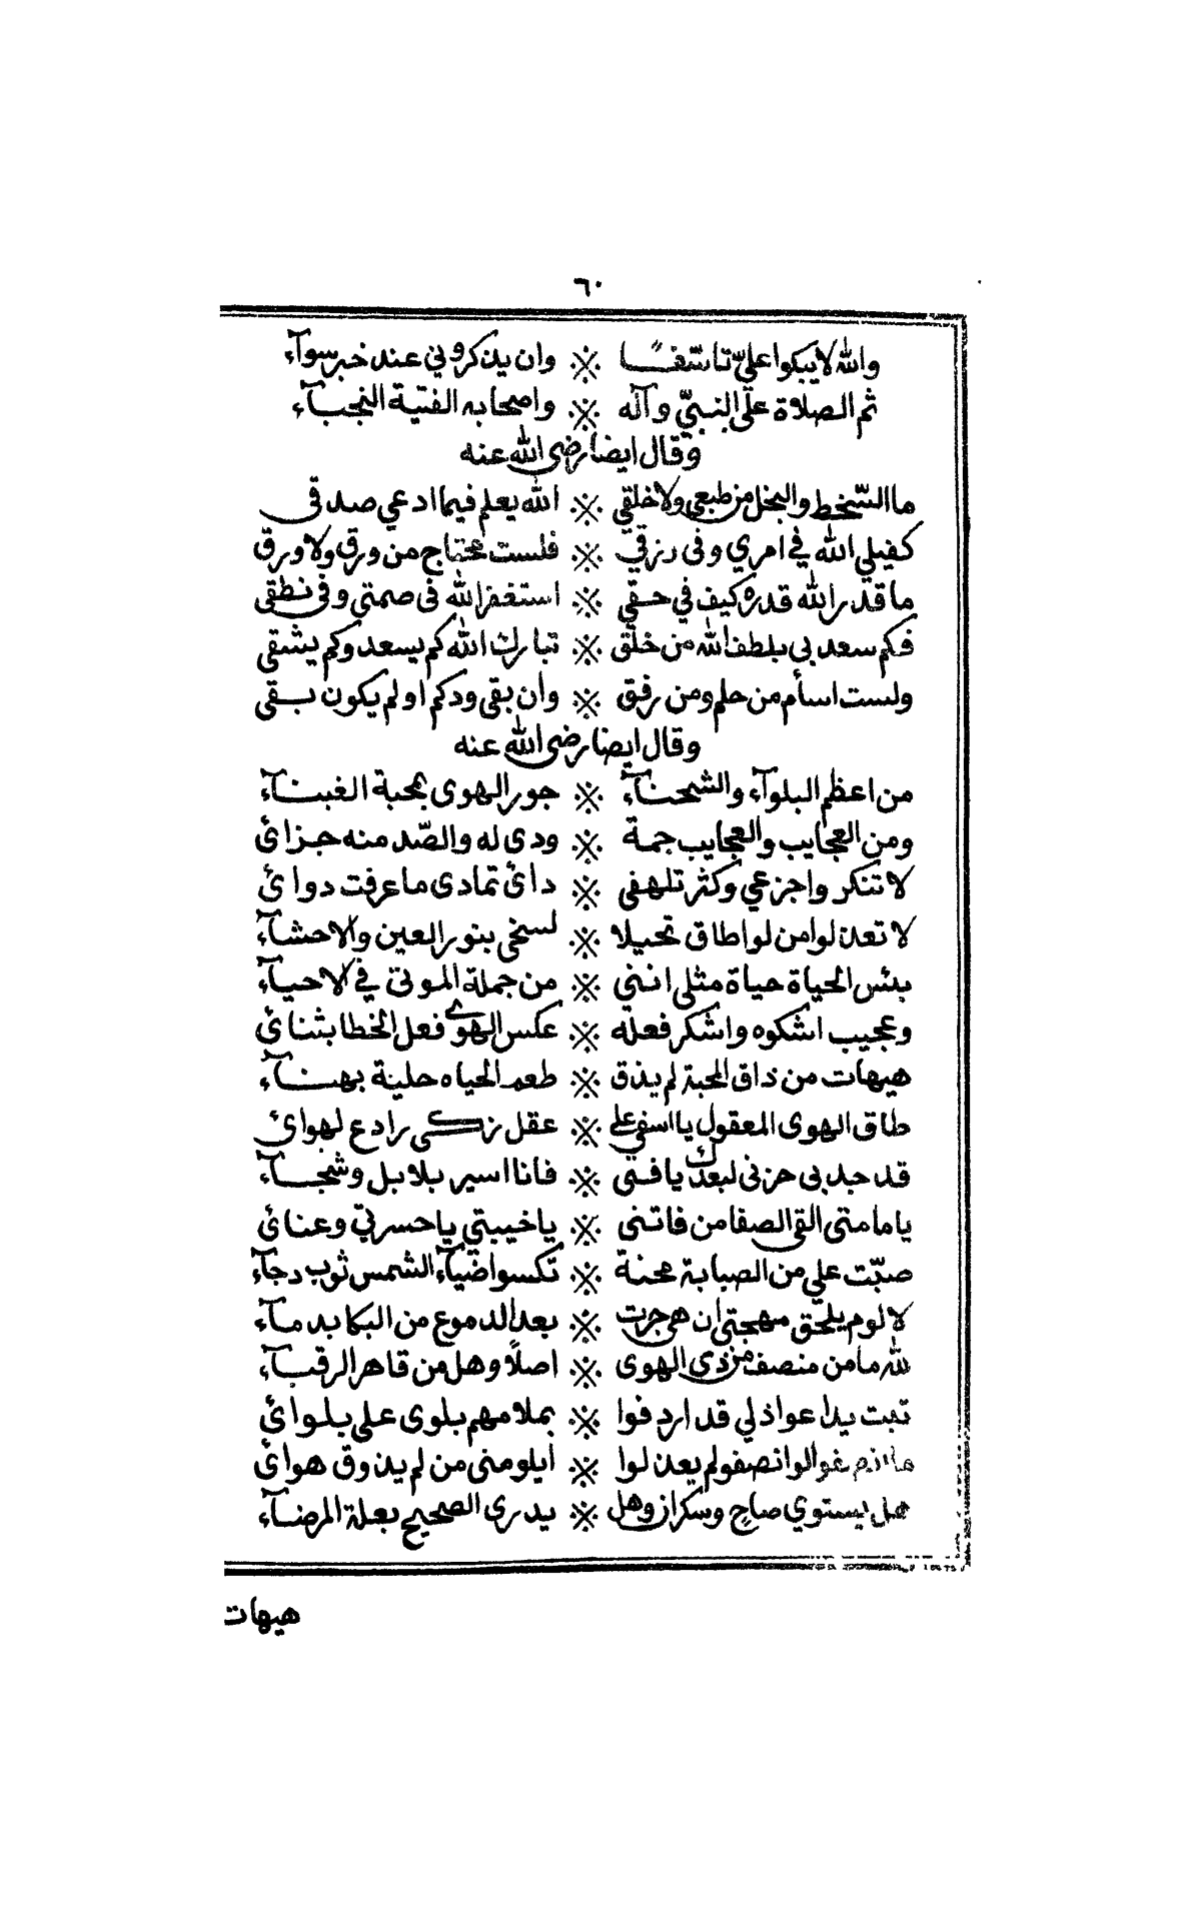 ٦٠
والله لا يبكوا عليّ تاسّفًا ※ وان يذكروني عند خبر سوآء
ثم الصلاة على النبيّ وآله ※ واصحابه الفتية النجبآء
وقال ايضا رضى الله عنه
ما السّخط والبخل من طبعي ولا خلقي ※ الله يعلم فيما ادعي صدقى
كفيلي الله في امري وفى رزقي ※ فلست محتاج من ورق ولا ورق
ما قدر الله قدره كيف في حقي ※ استغفر الله فى صمتي وفى نطقى
فكم سعد بي بلطف الله من خلق ※ تبارك الله كم يسعد وكم يشقى
ولست اسأم من حلم ومن رفق ※ وان بقى ودكم اولم يكون بقى
وقال ايضا رضى الله عنه
من اعظم البلوآء والشحنآء ※ جور الهوى بمحبة الغبنآء
ومن العجايب والعجايب جمة ※ ودى له والصّد منه جزائ
لا تنكروا جزعي وكثر تلهفي ※ دائ تمادى ما عرفت دوائ
لا تعذلوا من لو اطاق تحيلا ※ لسخى بنور العين والاحشآء
بئس الحياة حياة مثلى اننى ※ من جملة الموتى في الاحيآء
وعجيب اشكوه واشكر فعله ※ عكس الهوى فعل الخطا بثنائ
هيهات من ذاق المحبة لم يذق ※ طعم الحياه حلية بهنآء
طاق الهوى المعقول يا اسفى على ※ عقل زكى رادع لهوائ
قد جد بى حزنى لبعدك يا فتى ※ فانا اسير بلابل وشجآء
ياما متى القى الصفا من فاتنى ※ يا خيبتي يا حسرتي وعنائ
صبّت علي من الصبابة محنة ※ تكسوا ضيآء الشمس ثوب دجآء
لا لوم يلحق مهجتى ان هى جرت ※ بعد الدموع من البكا بدمآء
لله ما من منصف من ذي الهوى ※ اصلًا وهل من قاهر الرقبآء
تبت يدا عواذلي قد اردفوا ※ بملامهم بلوى على بلوائ
ما انصفوا لو انصفو لم يعذلوا ※ ايلومنى من لم يذوق هوائ
هل يستوي صاحٍ وسكران وهل ※ يدرى الصحيح بعلة المرضآء
هيهات